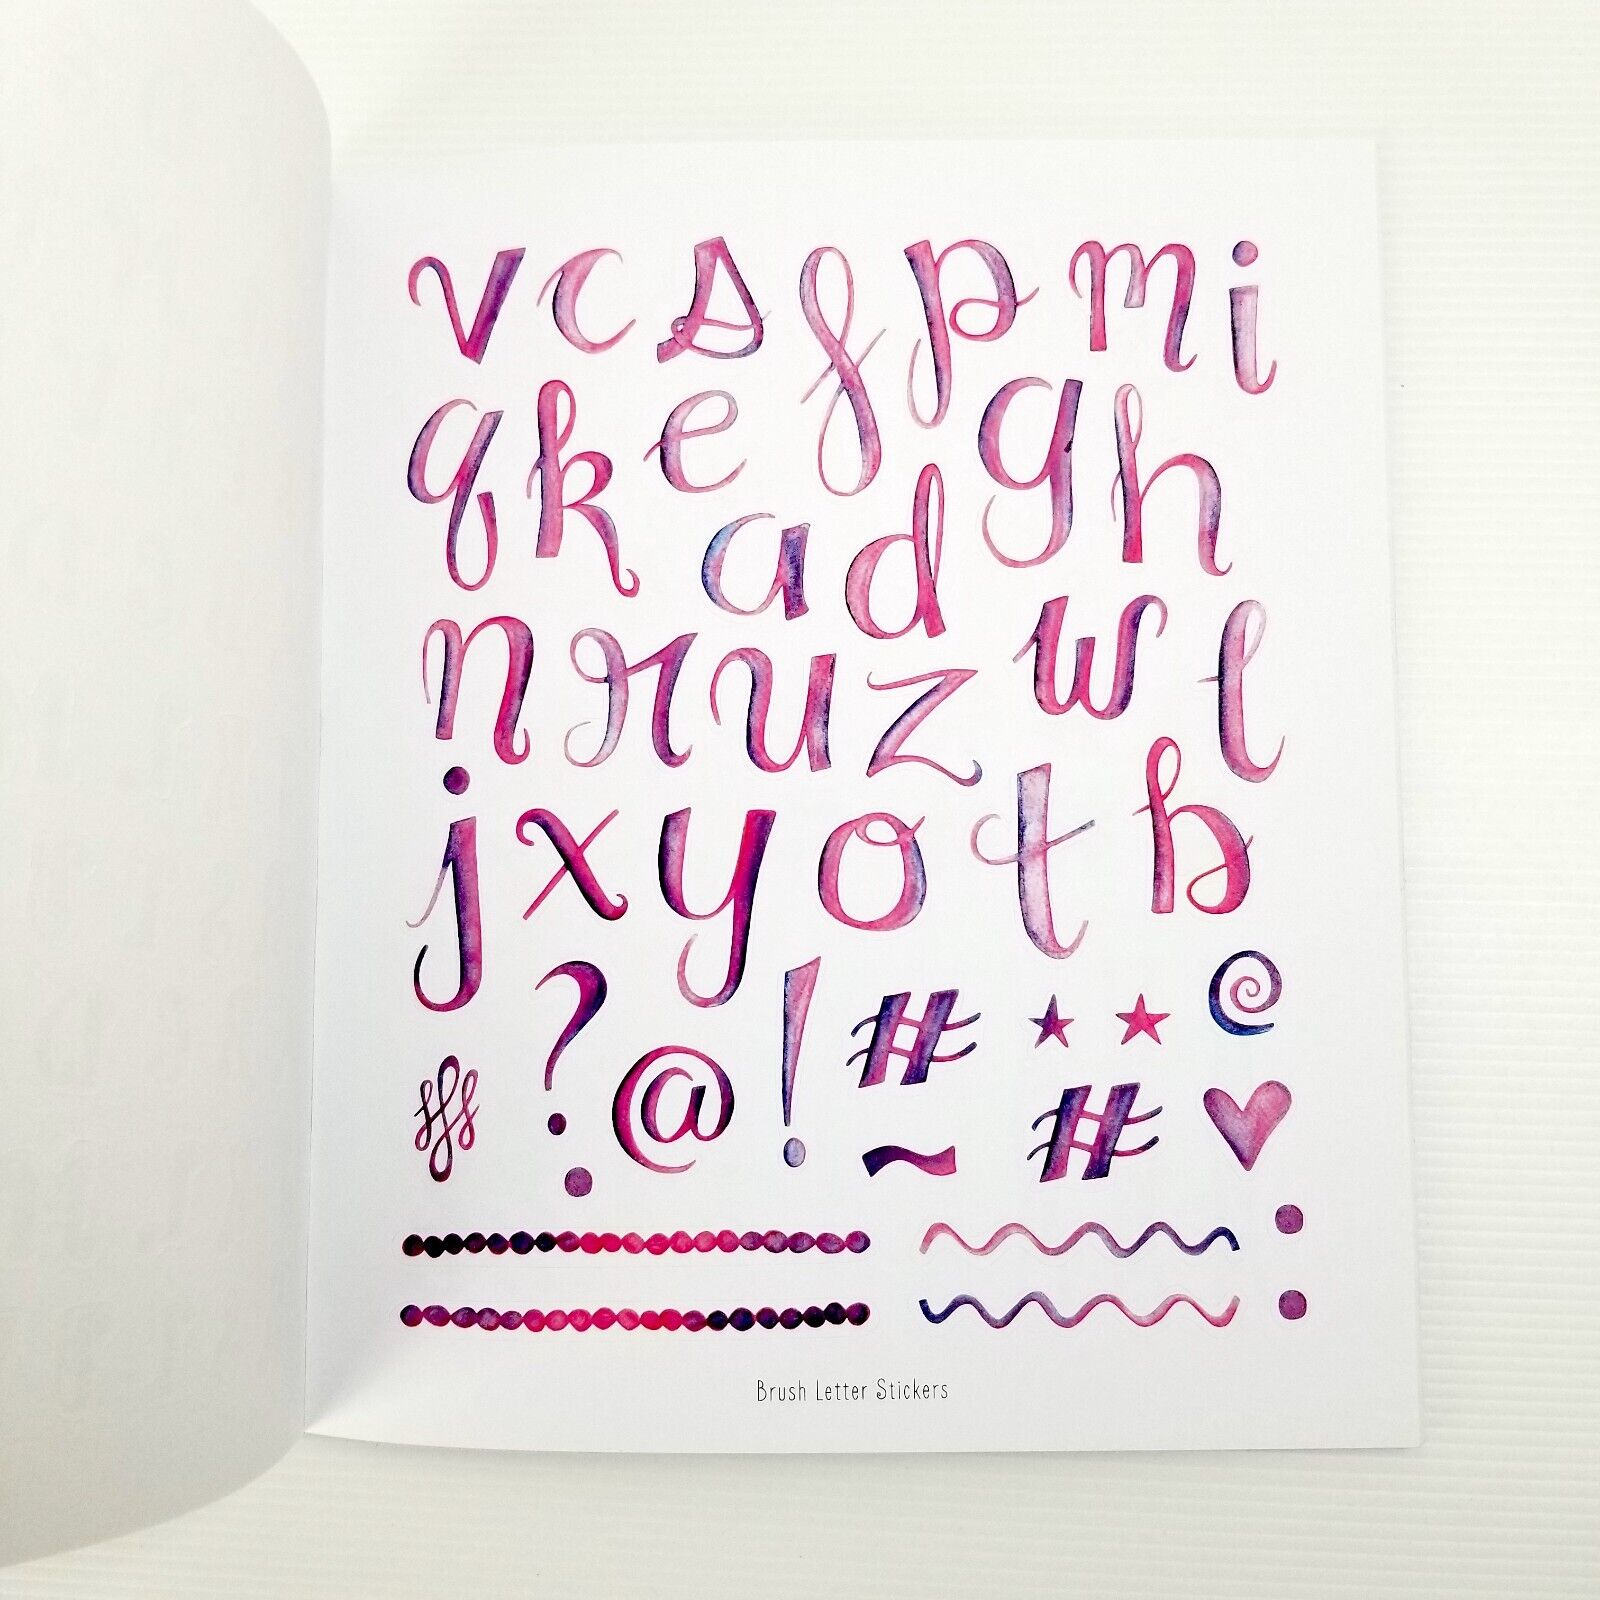 v c s f p m i
q k e g h
a d
n r u z w l
j x y o t b
? ! #
@ ~ #
Brush Letter Stickers